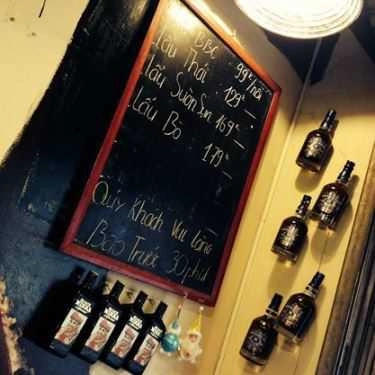 BBC : 99k/nồi
Lẩu Thái : 199k
Lẩu Sườn Sụn 169k
Lẩu Bò : 179k
Qúy Khách Vui lòng
Báo Trước 30 phút